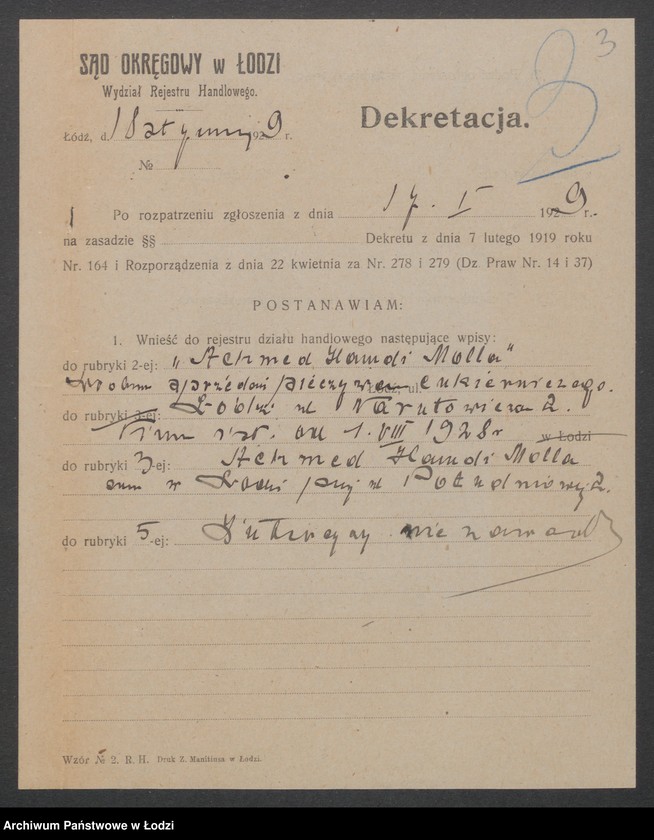 3
3
SĄD OKRĘGOWY w ŁODZI
Wydział Rejestru Handlowego.
Łódź, d. 18 stycznia 1929 r.
Dekretacja.
№
1 Po rozpatrzeniu zgłoszenia z dnia 17. I 1929 r.-
na zasadzie §§ Dekretu z dnia 7 lutego 1919 roku
Nr. 164 i Rozporządzenia z dnia 22 kwietnia za Nr. 278 i 279 (Dz. Praw Nr. 14 i 37)
POSTANAWIAM:
1. Wnieść do rejestru działu handlowego następujące wpisy:
do rubryki 2-ej: „Achmed Hamdi Molla"
sprzedaż pieczywa cukierniczego.
Łódź, ul.
do rubryki 3-ej: Łódź, ul Narutowicza 2.
Firma istn. od 1.VIII 1928 r
w Łodzi
do rubryki 3-ej: Achmed Hamdi Molla
zam w Łodzi przy ul Południowej 2.
do rubryki 5-ej: Intercyzy nie zawarł
Wzór № 2. R. H. Druk Z. Manitiusa w Łodzi.
Archiwum Państwowe w Łodzi